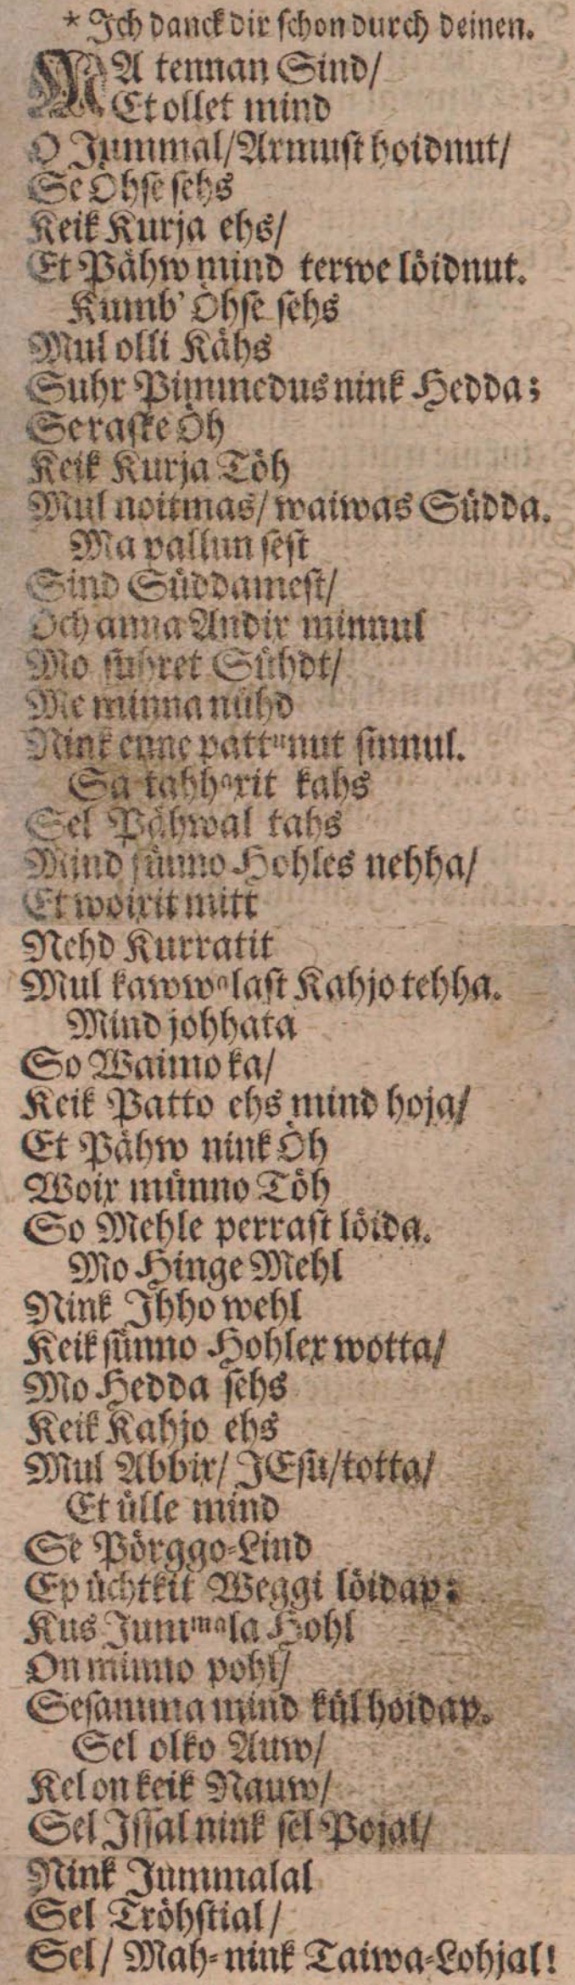 * Ich danck dir schon durch deinen.
MA tennan Sind/
Et ollet mind
O Jummal/Armust hoidnut/
Se Öhse sehs
Keik Kurja ehs/
Et Pähw mind terwe löidnut.
Kumb' Öhse sehs
Mul olli Kähs
Suhr Pimmedus nink Hedda;
Se raske Öh
Keik Kurja Töh
Mul noitmas/ waiwas Südda.
Ma pallun sest
Sind Süddamest/
Och anna Andix minnul
Mo suhret Sühdt/
Me minna nühd
Nink enne pattᵘnut sinnul.
Sa tahhᵃxit kahs
Sel Pähwal tahs
Mind sünno Hohles nehha/
Et woixit mitt
Nehd Kurratit
Mul kawwᵃlast Kahjo tehha.
Mind johhata
So Waimo ka/
Keik Patto ehs mind hoja/
Et Pähw nink Öh
Woix münno Töh
So Mehle perrast löida.
Mo Hinge Mehl
Nink Ihho wehl
Keik sünno Hohlex wotta/
Mo Hedda sehs
Keik Kahjo ehs
Mul Abbix/ JEsu/totta/
Et ülle mind
Se Pörggo-Lind
Ep üchtkit Weggi löidap:
Kus Jumᵐᵃla Hohl
On minno pohl/
Sesamma mind kül hoidap.
Sel olko Auw/
Kel on keik Nauw/
Sel Issal nink sel Pojal/
Nink Jummalal
Sel Tröhstial/
Sel/ Mah- nink Taiwa-Lohjal!